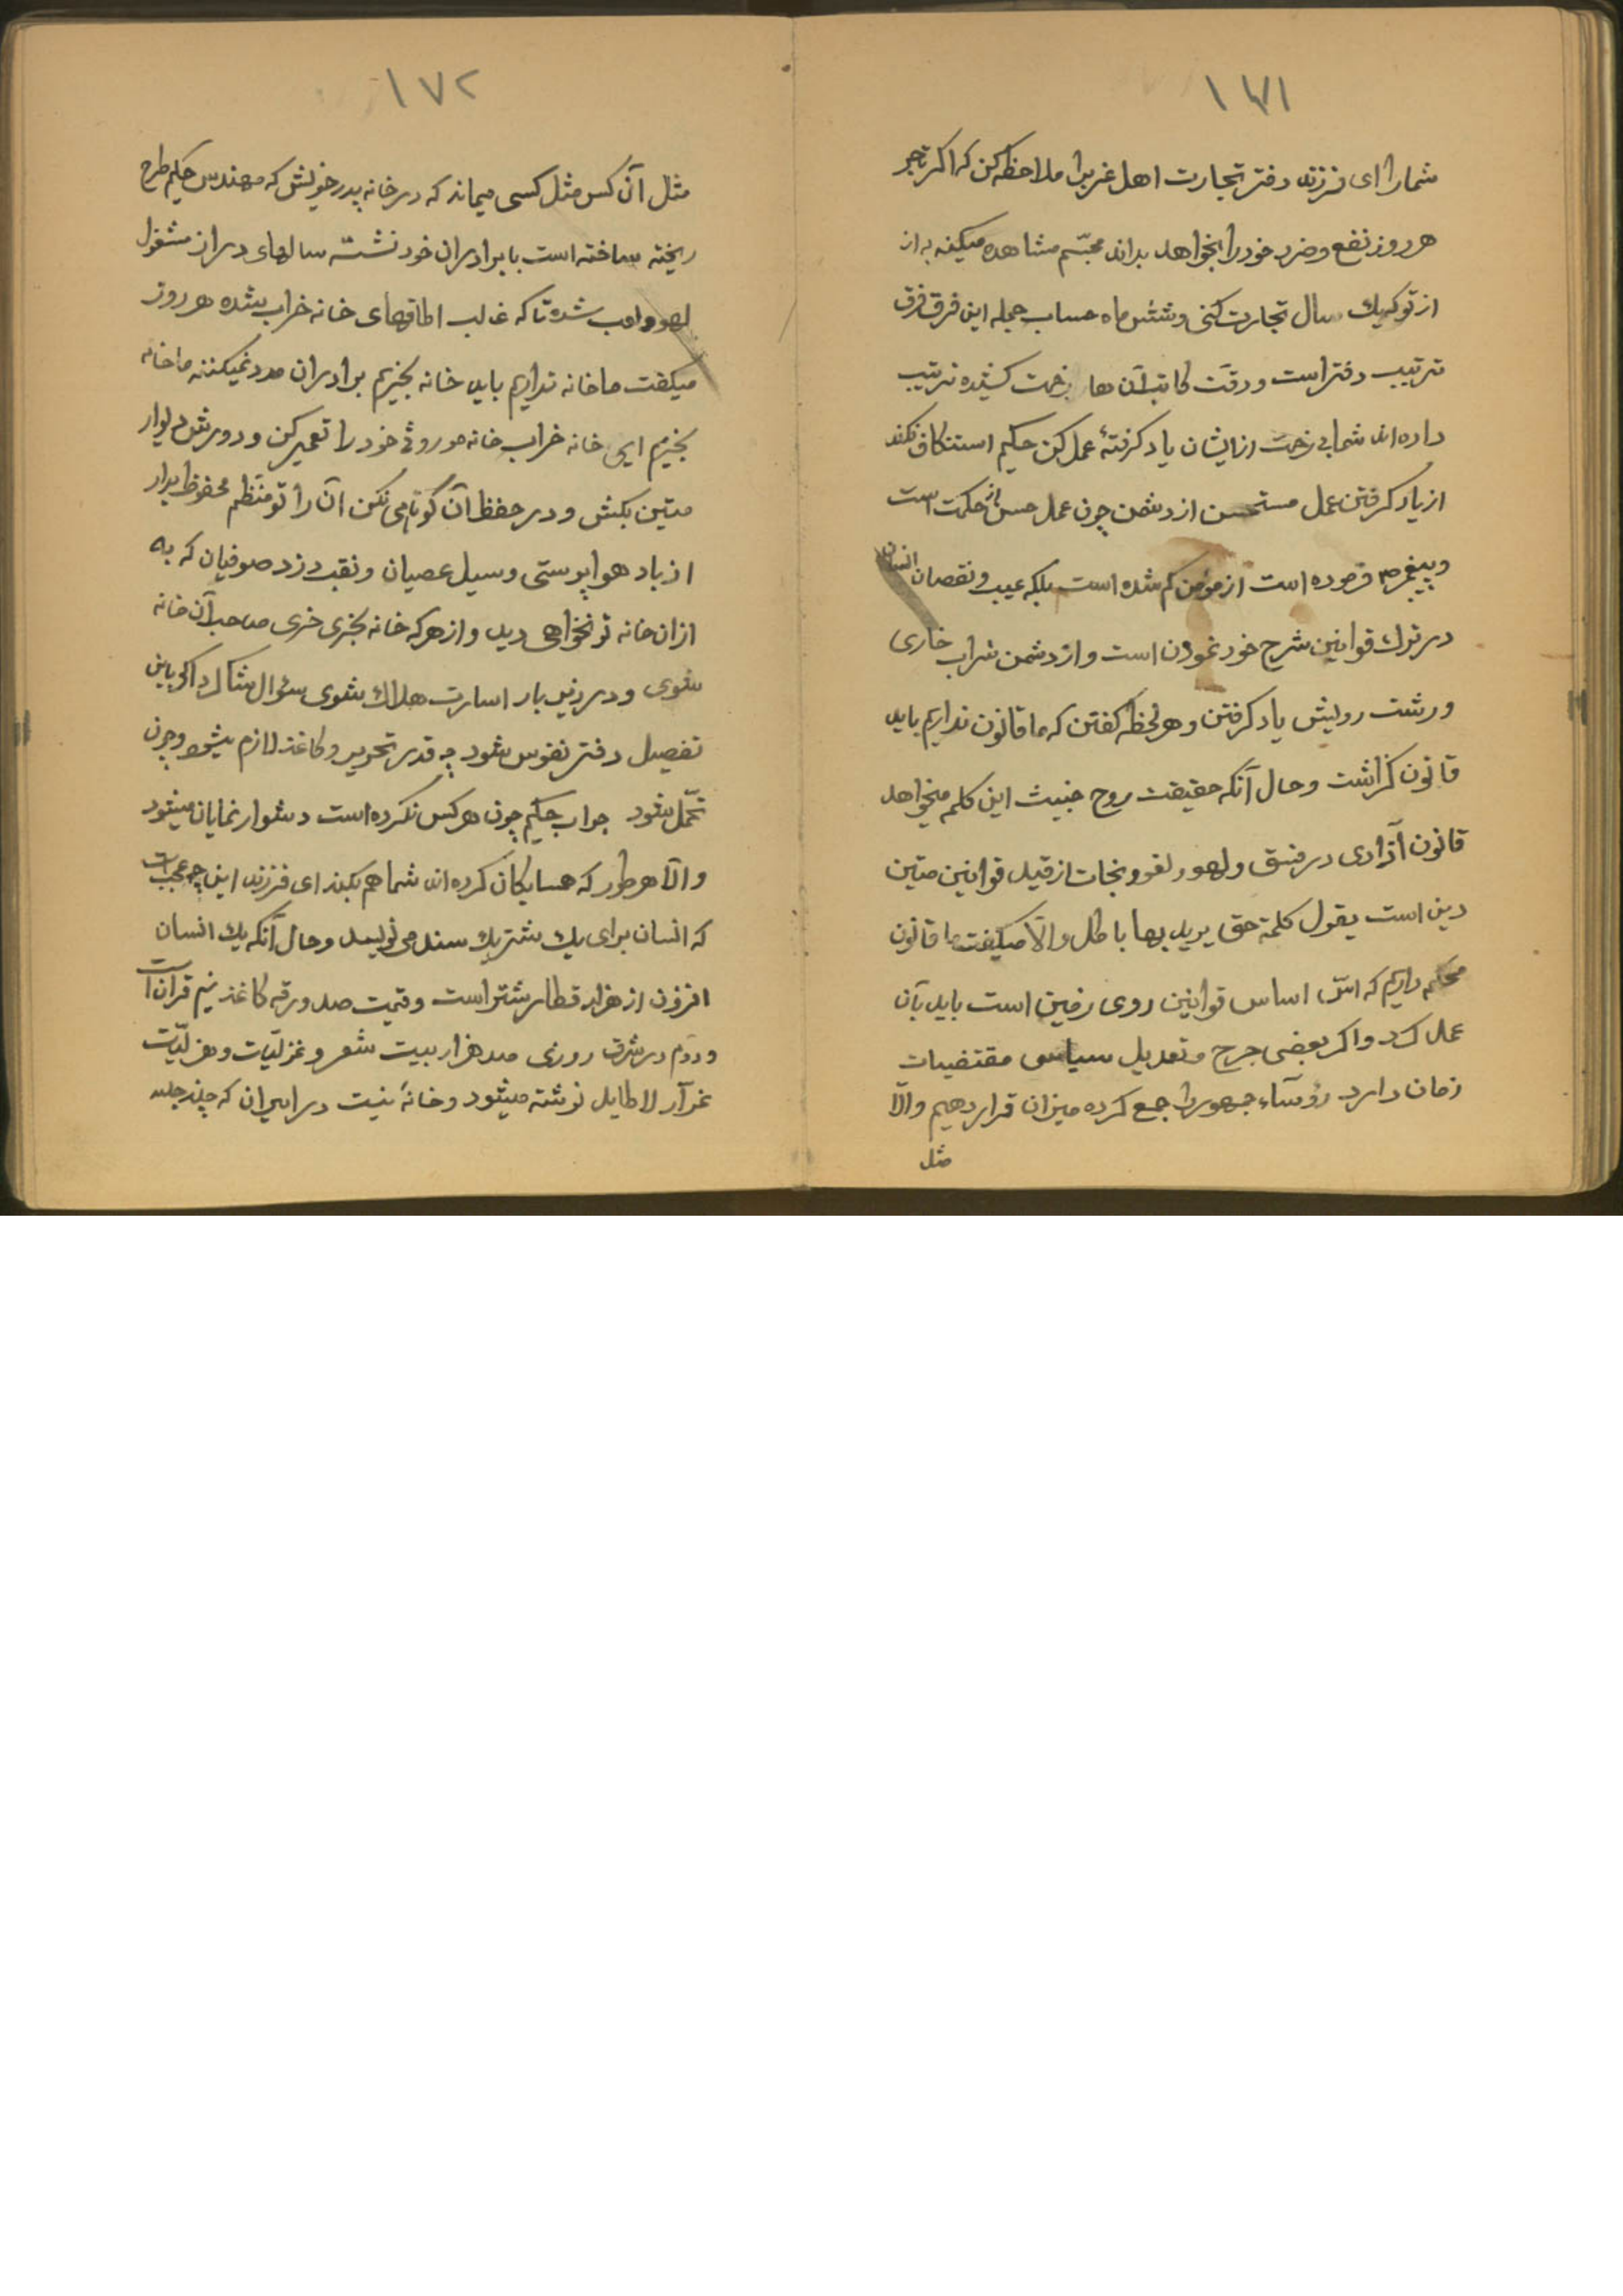 ۱۷۱
شما را ای فرزند دفتر تجارت اهل غرب را ملاحظه کن که اگر تاجر
هر روز نفع و ضرر خود را بخواهد بداند مجسّم مشاهده میکند نه از
از تو که یك سال تجارت کنی و شش ماه حساب جمله این فرق فرق
ترتیب دفتر است و دقت کاتب آن‌ها زحمت کشیده ترتیب
داده‌اند شما بی زحمت از ایشان یاد گرفتهٔ عمل کن حکیم استنکاف نکند
از یاد گرفتن عمل مستحسن از دشمن چون عمل حسن اثر حکمت است
و پیغمبر ص فرموده است از مؤمن کم شده است بلکه عیب و نقصان انسان
در ترك قوانین شرح خود نمودن است و از دشمن شراب خاری
و رشت رولیش یاد گرفتن و هر لحظه گفتن که ما قانون نداریم باید
قانون گذاشت و حال آنکه حقیقت روح خبیث این کلمه میخواهد
قانون آزادی در فسق و لهو و لغو و نجات از قید قوانین متین
دین است یقول کلمة حق یرید بها باطل و الّا میگفت ما قانون
محکم داریم که اسّ اساس قوانین روی زمین است باید بآن
عمل کرد و اگر بعضی جرح و تعدیل سیاسی مقتضیات
زمان دارد رؤسآء جمهور را جمع کرده میزان قرار دهیم و الّا
مثل
۱۷۲
مثل آن کس مثل کسی میماند که در خانه پدر خویش که مهندس حکیم طرح
ریخته ساخته است با برادران خود نشسته سالهای دراز مشغول
لهو و لعب شده تا که غالب اطاقهای خانه خراب بشده هر روز
میگفت ما خانه نداریم باید خانه بخریم برادران مدد نمیکنند ما خانه
بخریم ای خانه خراب خانه موروثی خود را تعمیر کن و دورش دیوار
متین بکش و در حفظ آن کوتاهی نکن آن را تو منظم محفوظ بدار
از باد هواپرستی و سیل عصیان و نقب دزد صوفیان که به
ازان خانه تو نخواهی دید و از هر که خانه بخری خری صاحب آن خانه
شوی و در زیر بار اسارت هلاك شوی سؤال شاکرد اگر باین
تفصیل دفتر نفوس شود چه قدر تحریر و کاغذ لازم میشود و چون
تحمّل شود جواب حکیم چون هر کس نکرده است دشوار نمایان میشود
و الّا هر طور که همسایکان کرده‌اند شما هم بکنید ای فرزند این چه عجب است
که انسان برای یك شتر یك سند می نویسد و حال آنکه یك انسان
افزون از هزار قطار شتر است و قیمت صد ورقه کاغذ نیم قران است
و دوم در شرق روزی صد هزار بیت شعر و غزلیّات و هزلیّات
لا طایل نوشته میشود و خانهٔ نیست در ایران که چند جلد